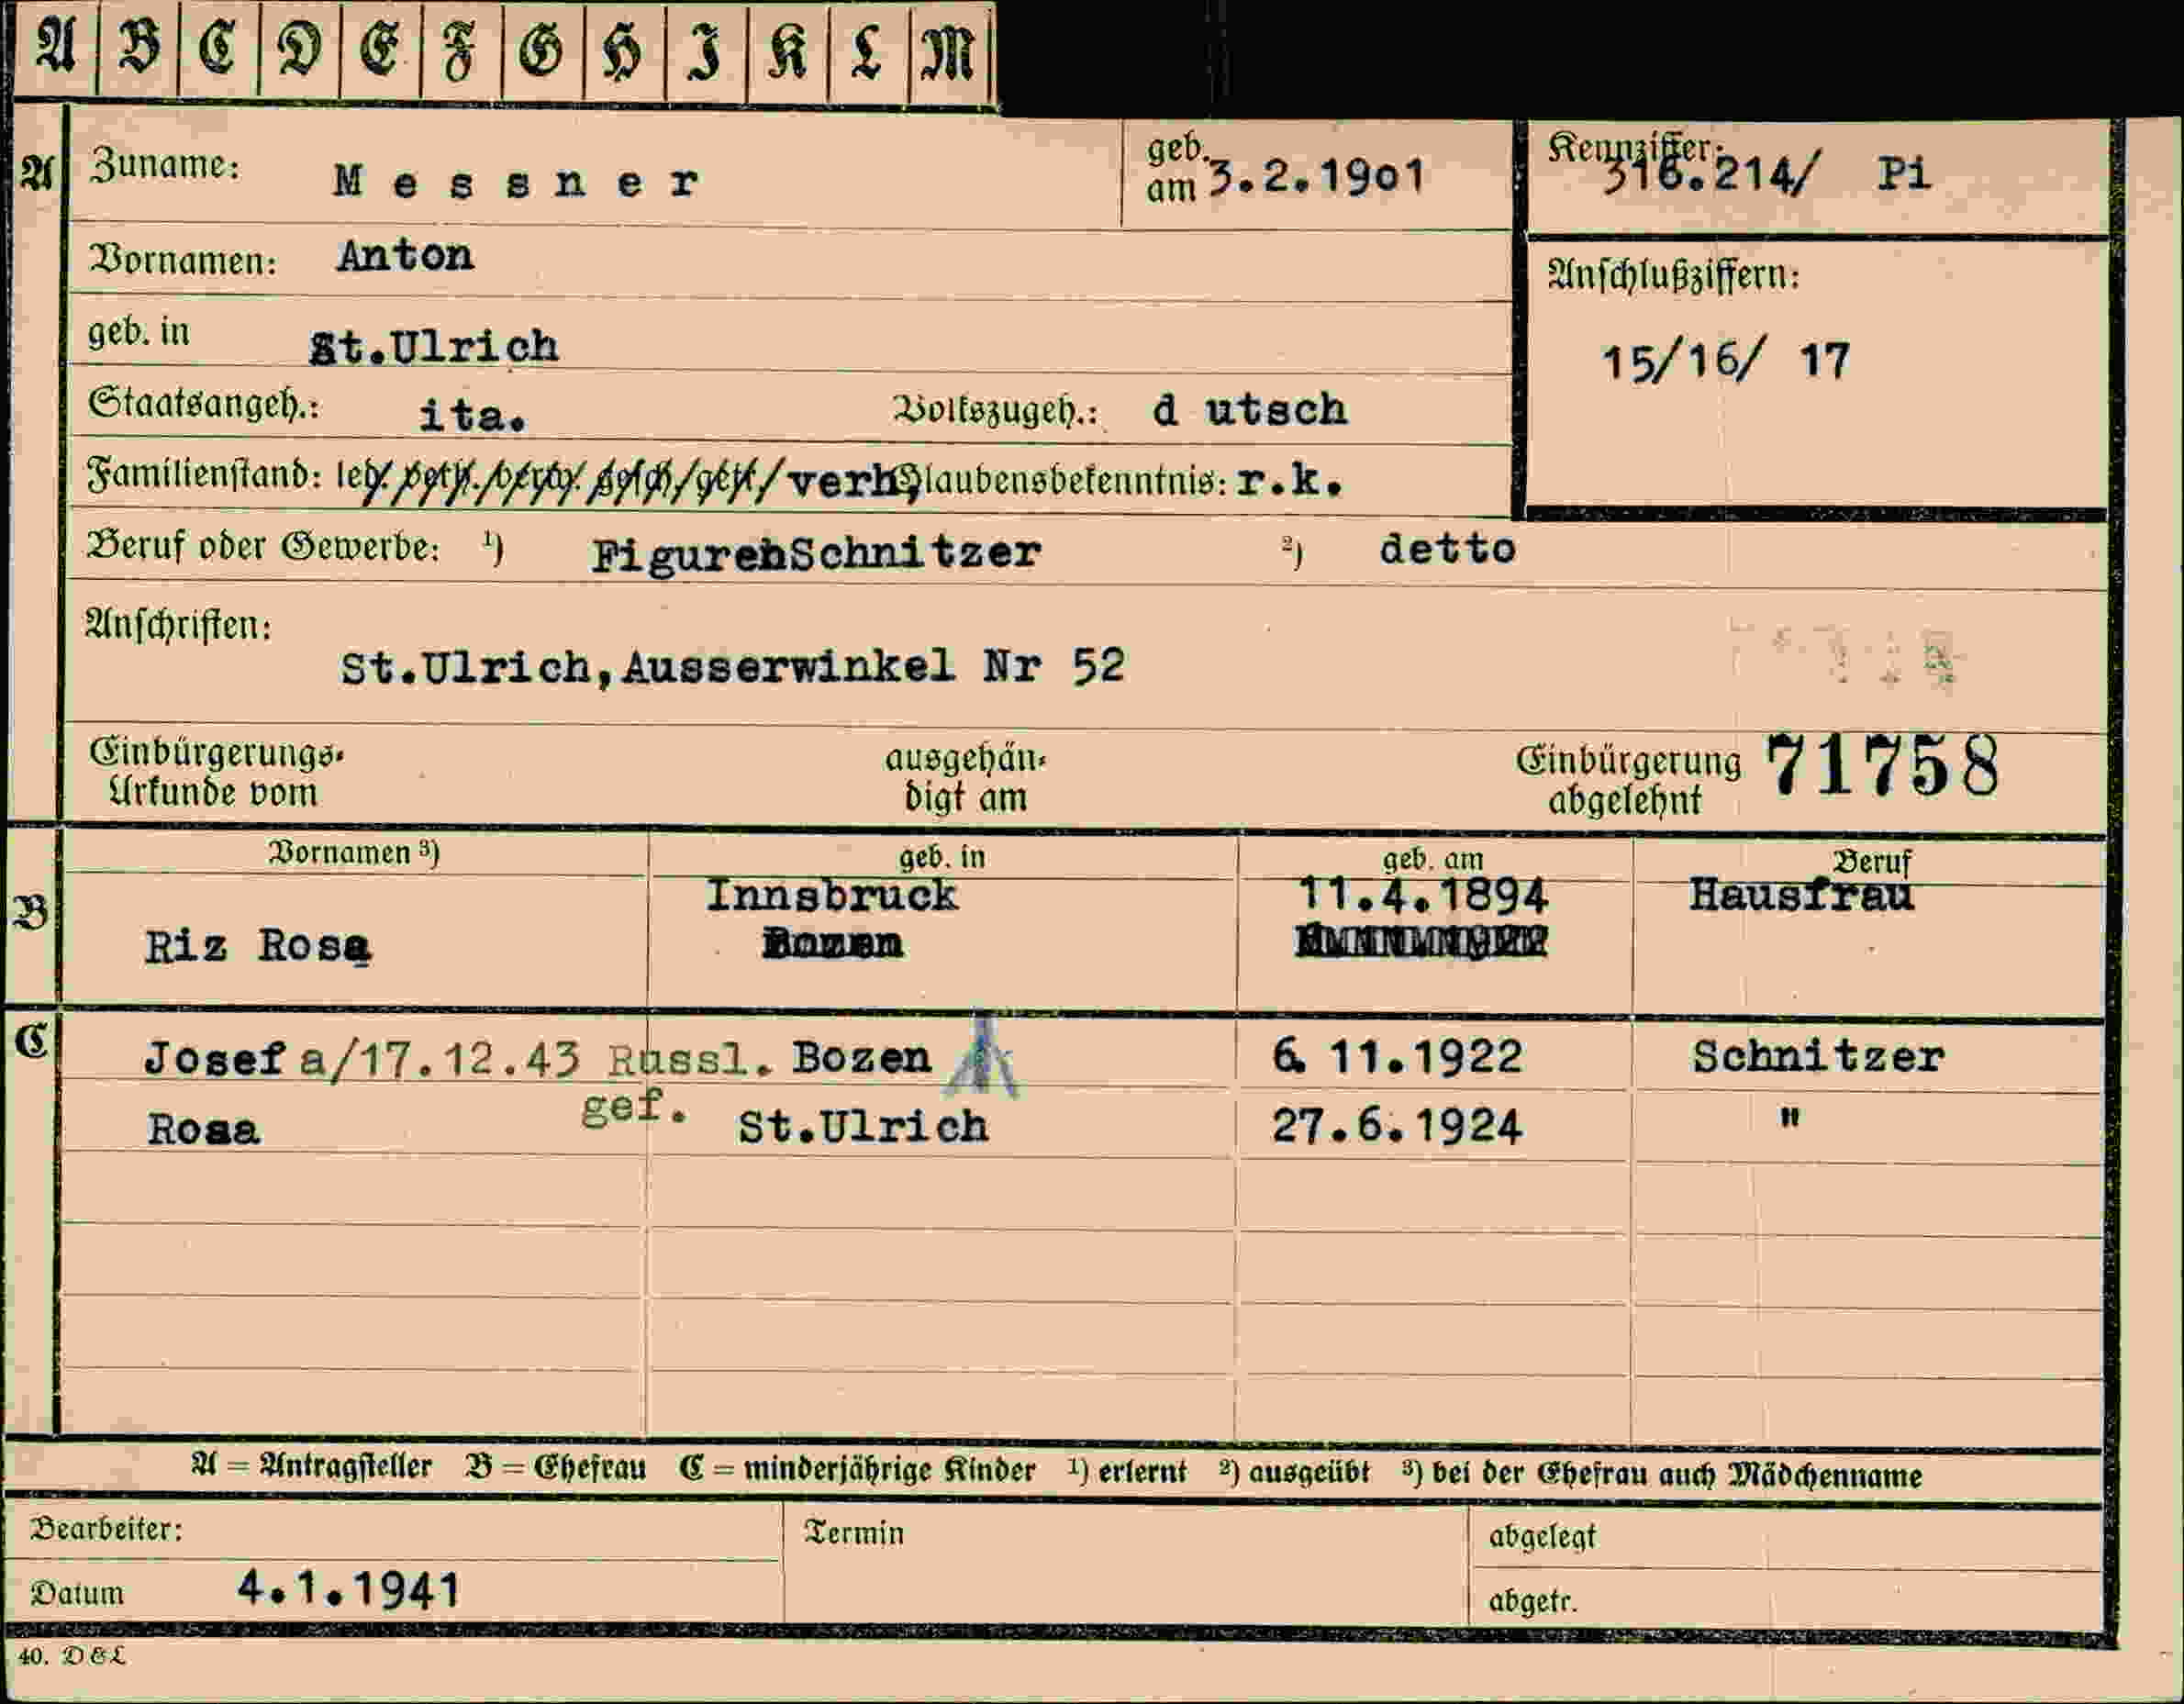 A B C D E F G H I K L M
A Zuname: Messner geb. am 3.2.1901 Kennziffer: 316.214/ Pi
Vornamen: Anton
Anschlußziffern:
geb. in St.Ulrich
15/16/ 17
Staatsangeh.: ita. Volkszugeh.: d utsch
Familienstand: led. verh. verw. gesch. get. verh. Glaubensbekenntnis: r.k.
Beruf oder Gewerbe: 1) FigurenSchnitzer 2) detto
Anschriften:
St.Ulrich,Ausserwinkel Nr 52
Einbürgerungs- ausgehän- Einbürgerung 71758
Urkunde vom digt am abgelehnt
Vornamen 3) geb. in geb. am Beruf
Innsbruck 11.4.1894 Hausfrau
B Riz Rosa Bozen
C Josef a/17.12.43 Russl. Bozen 6. 11.1922 Schnitzer
gef.
Rosa St.Ulrich 27.6.1924 "
A = Antragsteller B = Ehefrau C = minderjährige Kinder 1) erlernt 2) ausgeübt 3) bei der Ehefrau auch Mädchenname
Bearbeiter: Termin abgelegt
Datum 4.1.1941 abgetr.
40. D&L